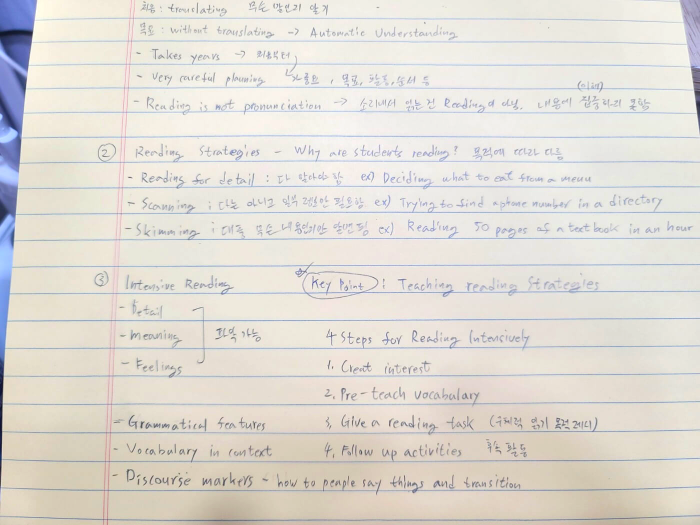 처음 : translating 무슨 말인지 알기
목표 : without translating → Automatic Understanding
- Takes years → 처음부터
- Very careful planning 자료는, 목표, 활동, 순서 등
- Reading is not pronunciation → 소리내서 읽는 건 Reading이 아님. 내용에 집중하지 못함
(이해)
② Reading Strategies - Why are students reading? 목적에 따라 다름
- Reading for detail : 다 알아야 함 ex) Deciding what to eat from a menu
- Scanning : 다는 아니고 일부 정보만 필요함 ex) Trying to find a phone number in a directory
- Skimming : 대충 무슨 내용인지만 알면됨 ex) Reading 50 pages of a textbook in an hour
③ Intensive Reading
Key Point : Teaching reading Strategies
- Detail
- meaning
- Feelings
파악 가능
4 Steps for Reading Intensively
1. Creat interest
2. Pre-teach vocabulary
- Grammatical features
3. Give a reading task (구체적 읽기 목적 제시)
- Vocabulary in context
4. Follow up activities 후속 활동
- Discourse markers - how to people say things and transition